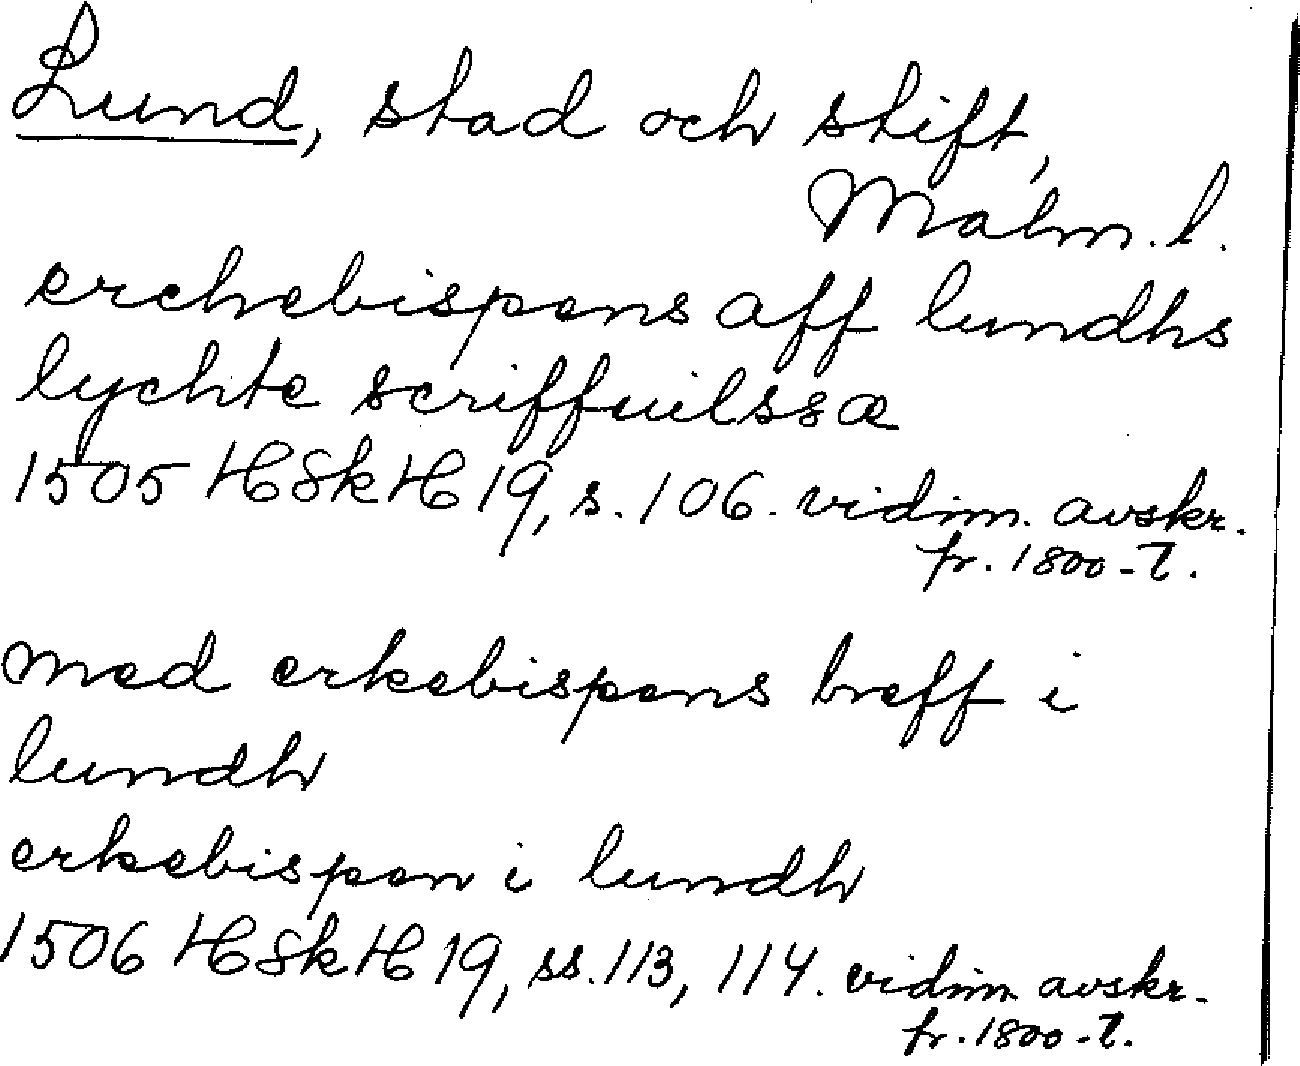 Lund, stad och stift,
Malm. l.
erchebispens aff lundhs
lychte scriffuilssæ
1505 HSkH 19, s. 106. vidim. avskr.
fr. 1800-t.
med erkebispens breff i
lundh
erkebispen i lundh
1506 HSkH 19, ss. 113, 114. vidim. avskr.
fr. 1800-t.